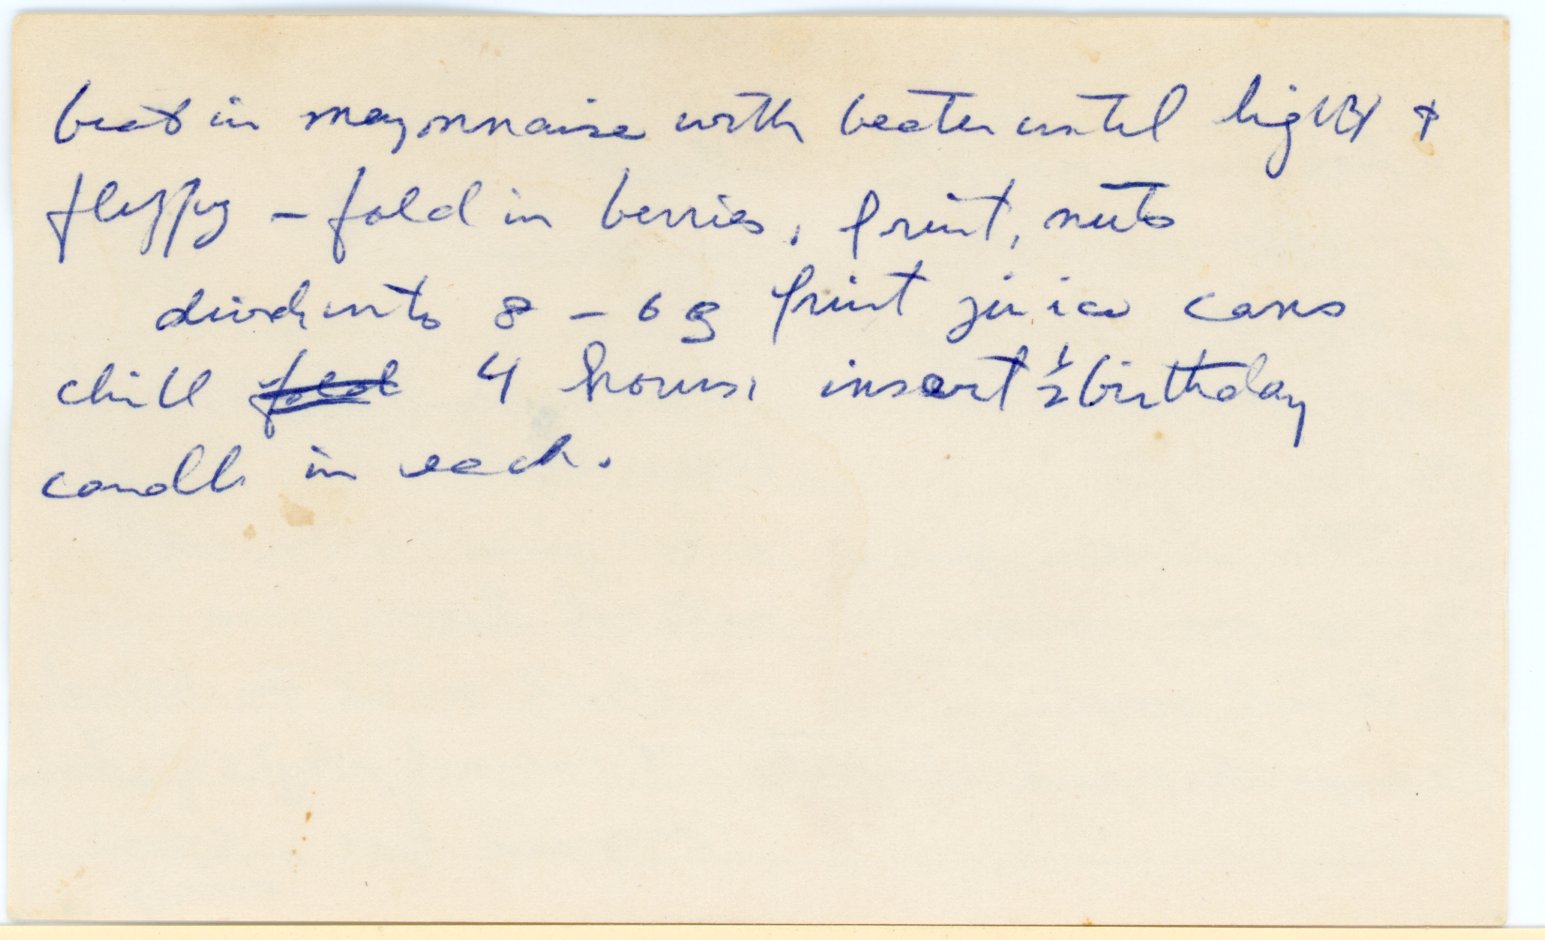 beat in mayonnaise with beater until light &
fluffy - fold in berries, fruit, nuts
divide into 8 - 6 oz fruit juice cans
chill fold 4 hours, insert ½ birthday
candle in each.